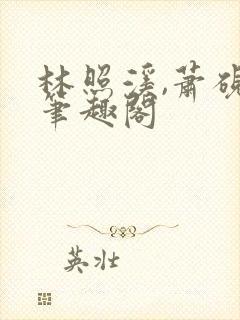 林照溪,萧砚
笔趣阁
英壮